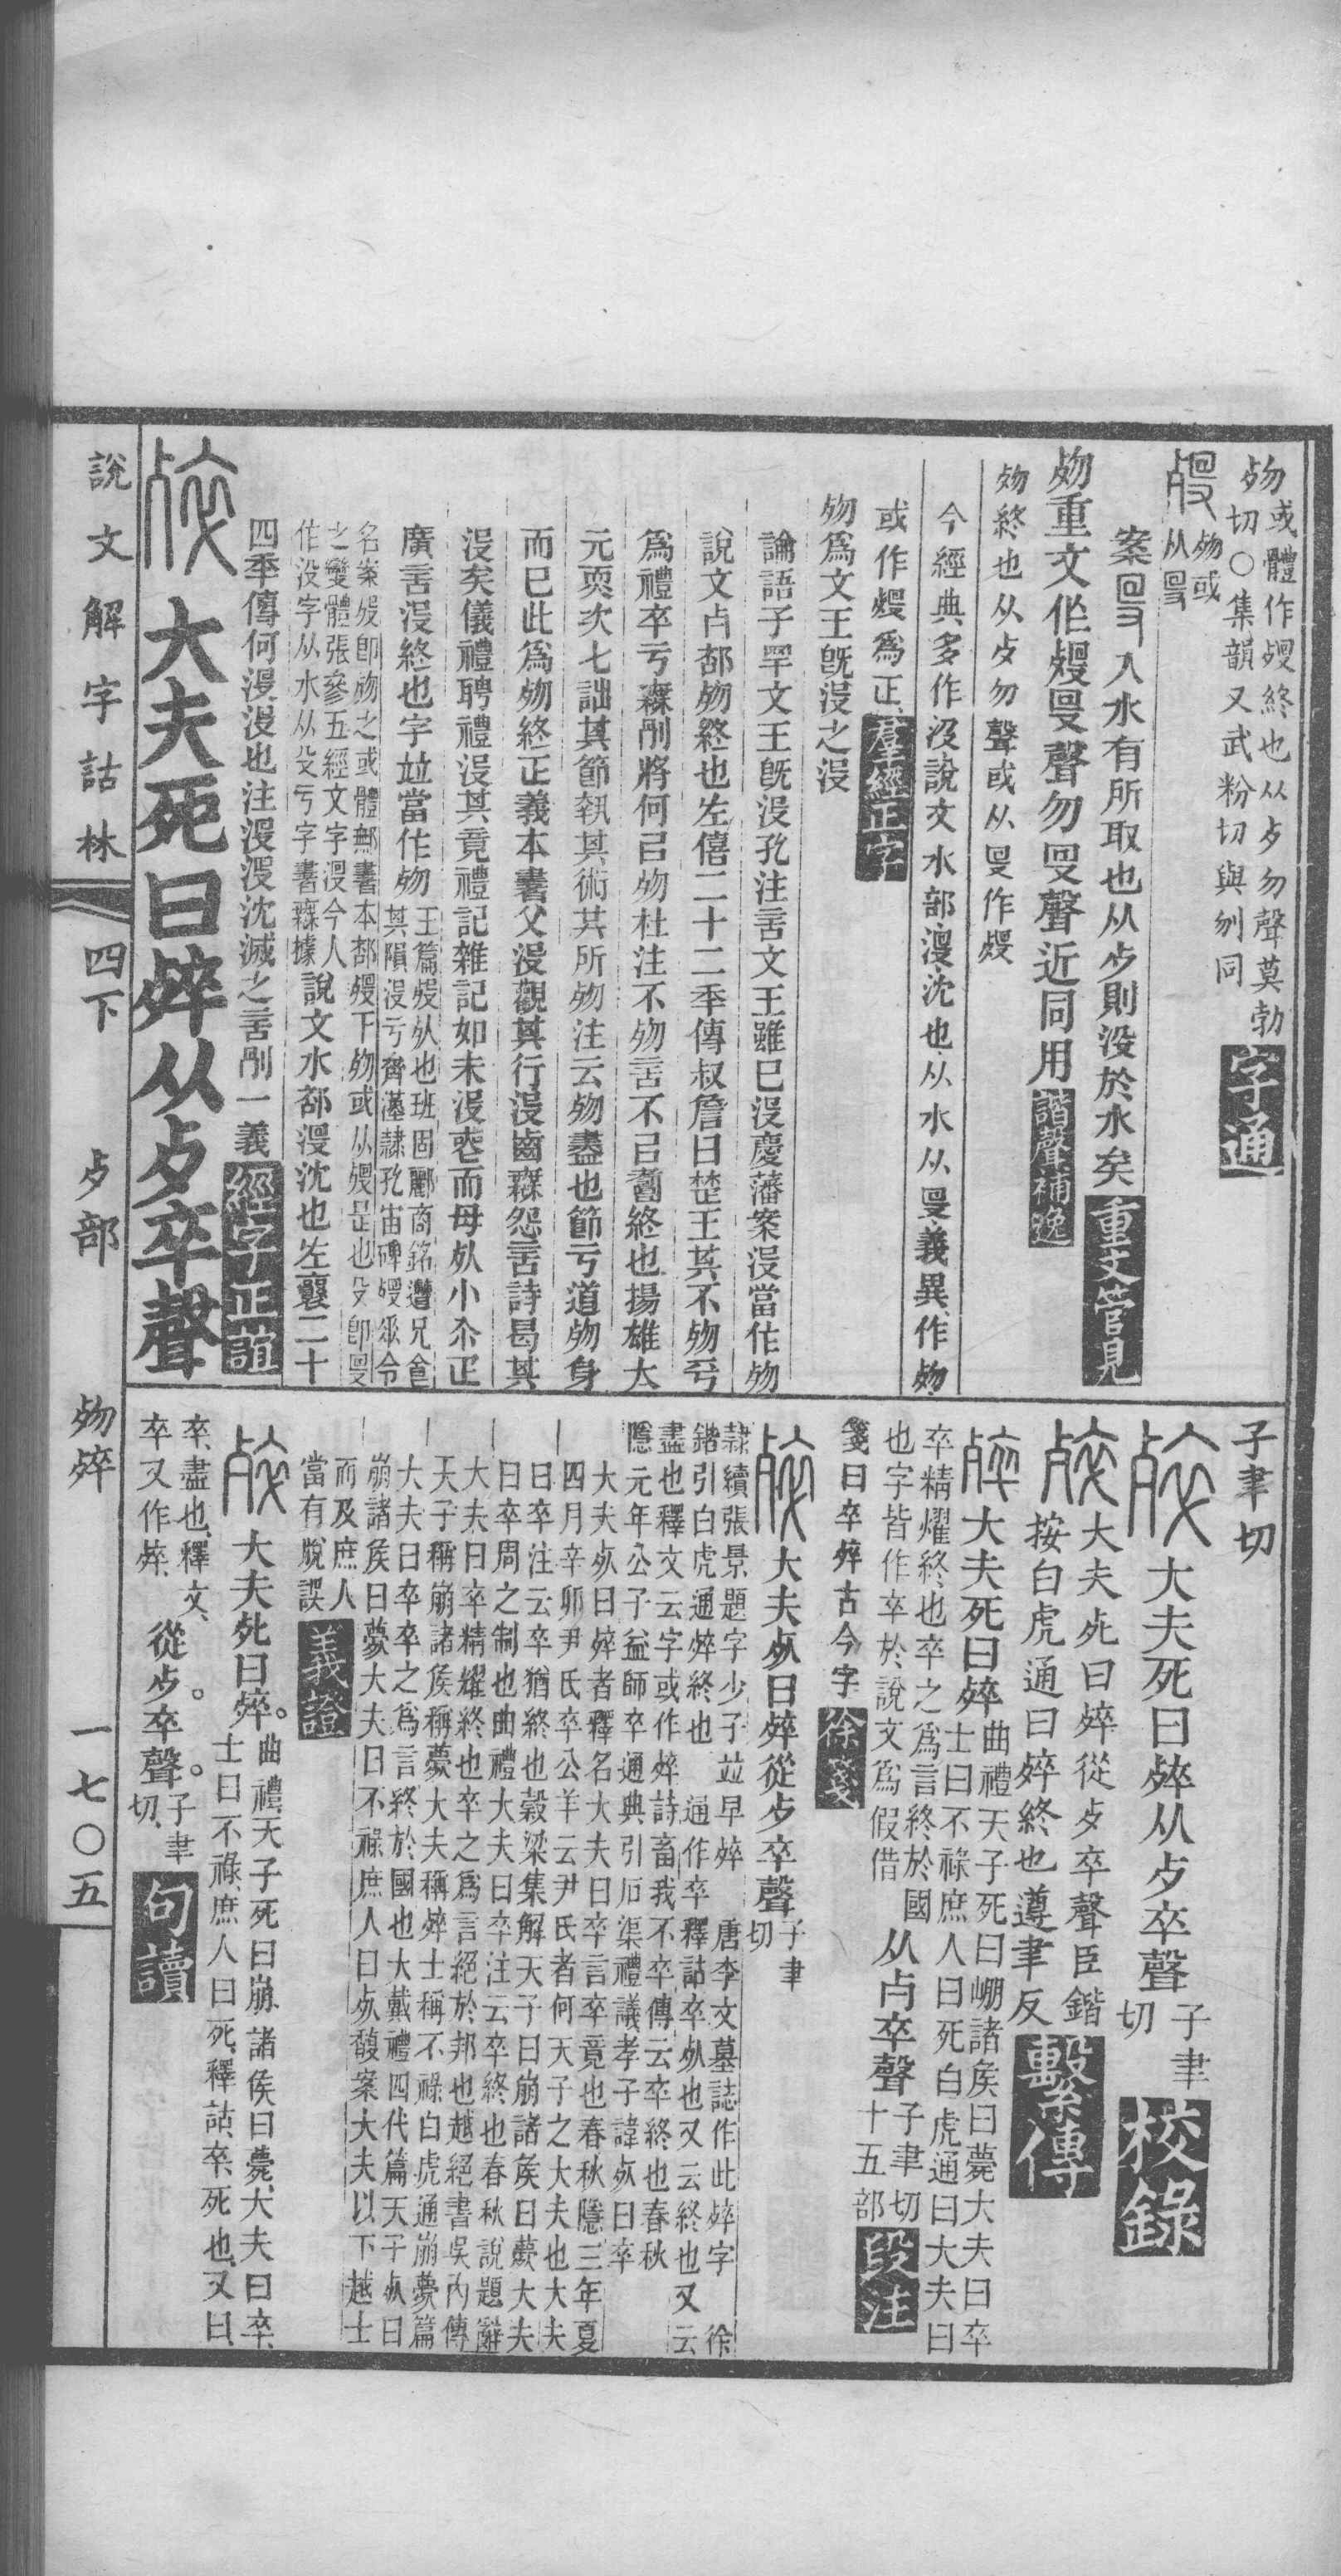 歾或體作歿終也从歺勿聲莫勃
切○集韻又武粉切與刎同 字通
歾或
从𠬛
案𠬛入水有所取也从歺則没於水矣 重文管見
歾重文作歿𠬛聲勿𠬛聲近同用 諧聲補逸
歾終也从歺勿聲或从𠬛作歿
今經典多作沒說文水部沒沈也从水从𠬛義異作歾
或作歿爲正 羣經正字
歾爲文王旣沒之沒
論語子罕文王旣沒孔注言文王雖巳沒慶藩案沒當作歾
說文歺部歾終也左僖二十二年傳叔詹曰楚王其不歾乎
爲禮卒于無別將何㠯歾杜注不歾言不㠯壽終也揚雄太
元耎次七詘其節執其術共所歾注云歾盡也節亏道歾身
而巳此爲歾終正義本書父沒觀其行沒齒無怨言詩曷其
沒矣儀禮聘禮沒其竟禮記雜記如未沒喪而母死小尒疋
廣言沒終也字竝當作歾
四年傳何沒沒也注沒沒沈滅之言別一義 經字正誼
大夫死曰䘹从歺卒聲
說文解字詁林 四下 歺部 歾䘹 一七〇五
子聿切
大夫死曰䘹从歺卒聲 子聿切 校錄
大夫死曰䘹從歺卒聲臣鍇
按白虎通曰䘹終也遵聿反 繫傳
大夫死曰䘹 曲禮天子死曰崩諸矦曰薨大夫曰卒
士曰不祿庶人曰死白虎通曰大夫曰
卒精燿終也卒之爲言終於國
也字皆作卒於說文爲假借 从歺卒聲 子聿切十五部 段注
箋曰卒䘹古今字 徐箋
大夫死曰䘹從歺卒聲 子聿切
隸續張景題字少子竝早䘹 唐李文墓誌作此䘹字 徐
鍇引白虎通䘹終也 通作卒釋詁卒死也又云終也又云
盡也釋文云字或作䘹詩畜我不卒傳云卒終也春秋
隱元年公子益師卒通典引石渠禮議孝子諱死曰卒
大夫死曰䘹者釋名大夫曰卒言卒竟也春秋隱三年夏
四月辛卯尹氏卒公羊云尹氏者何天子之大夫也大夫
曰卒注云卒猶終也穀梁集解天子曰崩諸矦曰薨大夫
曰卒周之制也曲禮大夫曰卒注云卒終也春秋說題辭
大夫曰卒精耀終也卒之爲言絕於邦也越絕書吳內傳
天子稱崩諸矦稱薨大夫稱䘹士稱不祿白虎通崩薨篇
大夫曰卒卒之爲言終於國也大戴禮四代篇天子死曰
崩諸矦曰薨大夫曰不祿庶人曰死馥案大夫以下越士
而及庶人
當有脫誤 義證
大夫死曰䘹。曲禮天子死曰崩、諸矦曰薨、大夫曰卒、
士曰不祿、庶人曰死、釋詁、卒、死也、又曰、
卒、盡也、釋文、
卒又作䘹、 從歺。卒聲。子聿切、 句讀